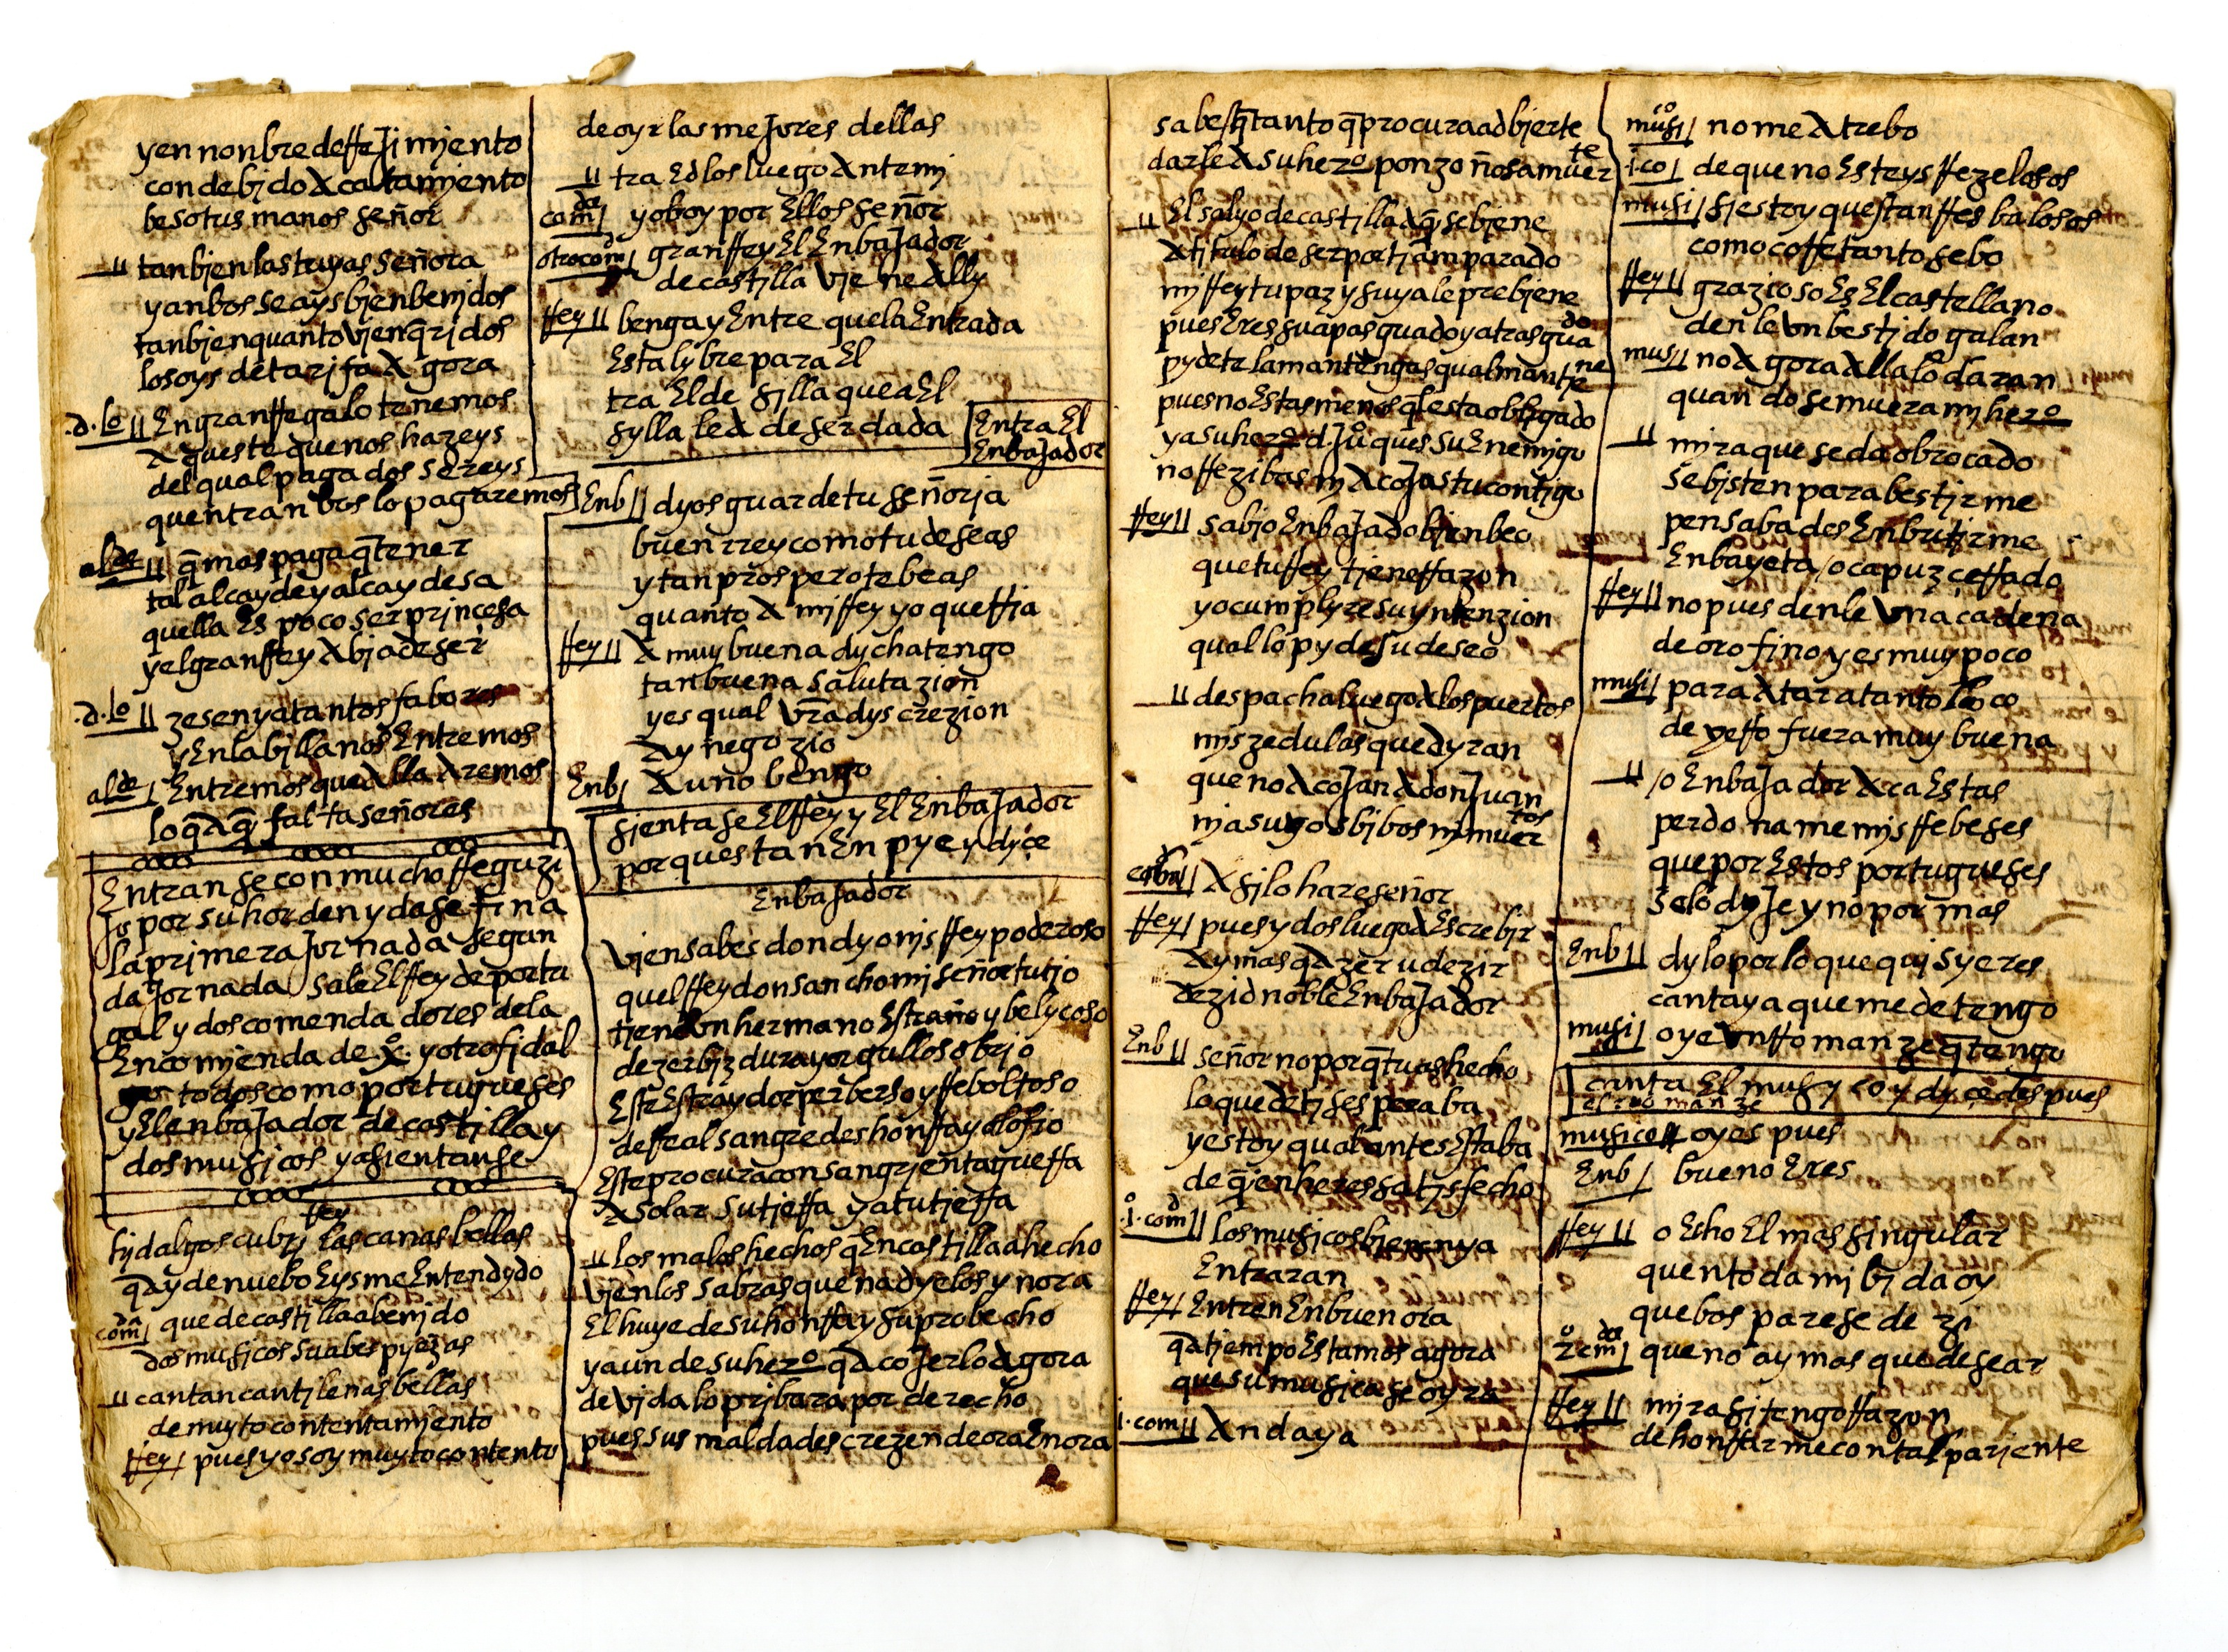 yen nonbre de rreJimjento
con debjdo acatamjento
beso tus manos señor
ll tanbjen las tuyas señora
y anbos seays bjenbenjdos
tanbjen quanto vjen q̄rjdos
lo soys de tarjfa agora
.d.lo ll En gran rregalo tenemos
aqueste que nos hazeys
del qual pagados sereys
quentranbos lo pagaremos
alde ll q̄ mas paga q̄ tener
tal alcayde y alcaydesa
quella Es poco ser prjncesa
y el gran rrey abja de ser
.d.lo ll zesen ya tantos fabores
y En la bjlla nos Entremos
alde / Entremos que alla aremos
lo q̄ aq̄ falta señores
Entranse con mucho rreguzi
Jo por su horden y dase fin a
la primera Jornada segun
da Jornada sale El rrey de portu
gal y dos comendadores de la
Encomjenda de xo y otro fidal
go todos como portugueses
y El enbaJador de castilla y
dos musicos y asientanse
rrey
fydalgos cubrj las canas bellas
q̄ ay de nuebo Eysme Entendydo
comda / que de castilla a benjdo
dos musicos suabes pyezas
ll cantan cantjlenas bellas
de muyto contentamjento
rrey / pues yo soy muyto contento
de oyr las meJores dellas
ll traEdlos luego ante mj
comda / yo boy por Ellos señor
otro com / gran rrey El EnbaJador
de castilla vjene ally
rrey ll benga y Entre que la Entrada
Esta lybre para El
traElde silla que a El
sylla le a de ser dada
Entra El
EnbaJador
Enb ll dyos guarde tu señorja
buen rrey como tu deseas
y tan prospero te beas
quanto a mj rrey yo querria
rrey ll a muy buena dycha tengo
tan buena salutazion
y es qual vr̄a dyscrezion
ay negozio
Enb / a uno bengo
sjentase El rrey y El EnbaJador
porquestan En pye y dyce
EnbaJador
vjen sabes don dyonjs rrey poderoso
quel rrey don sancho mj señor tu tio
tjene vn hermano Estraño y belycoso
de zerbjz dura y orgulloso brjo
EstrEstraydor perberso y rreboltoso
de rreal sangre deshonrra y alofio
Este procura con sangrjenta guerra
asolar su tjerra y a tu tjerra
ll los malos hechos q̄ En castilla a hecho
vjen los sabras que nadye los ynora
El huye de su honrra y su probecho
y aun de su hero q̄ a coJerlo agora
de vjda lo prjbara por derecho
pues sus maldades crezen de ora En ora
sabes q̄ tanto q̄ procura adbjerte
darle a su hero ponzoñosa muerte
ll El salyo de castjlla aq̄ se bjene
a tjtulo de ser por tj amparado
mj rrey tu paz y suya le prebjene
pues Eres su apasguado y atrasguado
pydete la mantengas qual mantjene
pues no Estas menos q̄l esta oblygado
y a su hero d Juo ques su Enemjgo
no rrezibas nj acoJas tu contjgo
rrey ll sabjo EnbaJado bjen beo
que tu rrey tjene rrazon
yo cumplyre su yntenzion
qual lo pyde su deseo
ll despacha luego a los puertos
mjs zedulas que dyran
que no acoJan a don Juan
nj a suyos bjbos nj muertos
/ asi lo hare señor
rrey / pues ydos luego a Escrebjr
ay mas q̄ azer u dezir
dezid noble EnbaJador
Enb ll señor no por q̄ tu as hecho
lo que de tj se speraba
y estoy qual antes Estaba
de q̄en heres satjsfecho
1o comd ll los musicos bjenen ya
Entraran
rrey / Entren En buen ora
q̄ a tjempo Estamos agora
que su musica se oyra
1. com ll anda ya
musico / no me atrebo
1.co / de que no Esteys rrezelosos
musi / si estoy questan rresbalosos
como corre tanto sebo
rrey ll grazioso Es El castellano
denle vn bestjdo galan
mus ll no agora alla lo daran
quando se muera mj hero
ll mjra que seda o brocado
se bisten para bestjrme
pensabades Enbutjrme
En bayeta / o capuz cerrado
rrey ll no pues denle vna cadena
de oro fino y es muy poco
musi / para atar a tanto loco
de yerro fuera muy buena
ll / o EnbaJador aca Estas
perdoname mjs rrebeses
que por Estos portugueses
se lo dyJe y no por mas
Enb ll dylo por lo que quisyeres
canta ya que me detengo
musi / oye vn rromanze q̄ tengo
canta El musyco y dyce despues
el rromanze
musico ll oyes pues
Enb / bueno Eres
rrey ll o Echo El mas singular
quen toda mj bjda oy
que bos parese dezi
2o cmda / que no ay mas que desear
rrey ll mjra si tengo rrazon
de honrrarme con tal parjente